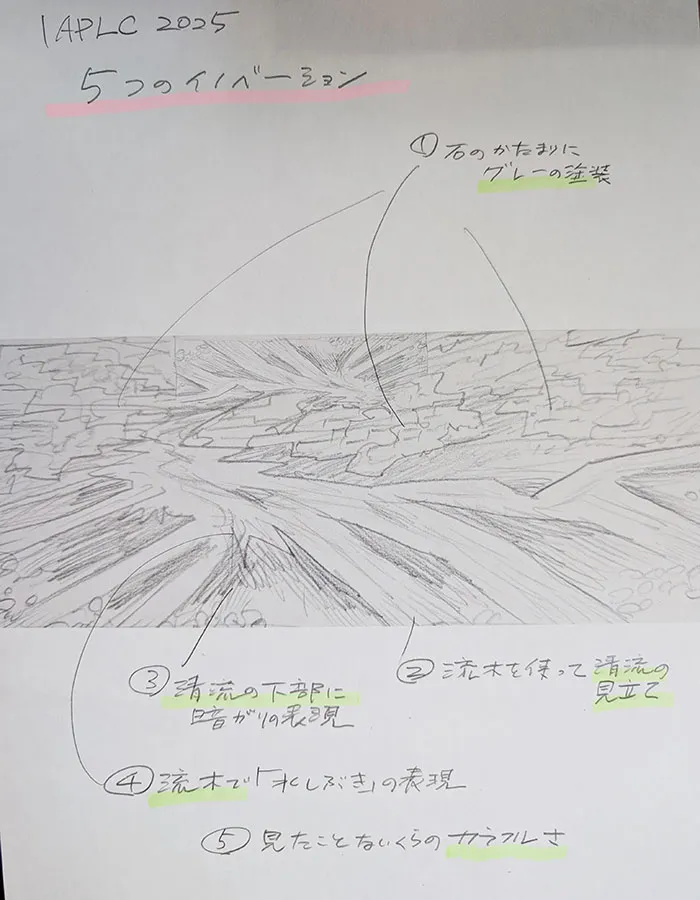 IAPLC 2025
5つのイノベーション
① 石のかたまりに
グレーの塗装
② 流木を使って清流の
見立て
③ 清流の下部に
暗がりの表現
④ 流木で「水しぶき」の表現
⑤ 見たことないくらのカラフルさ